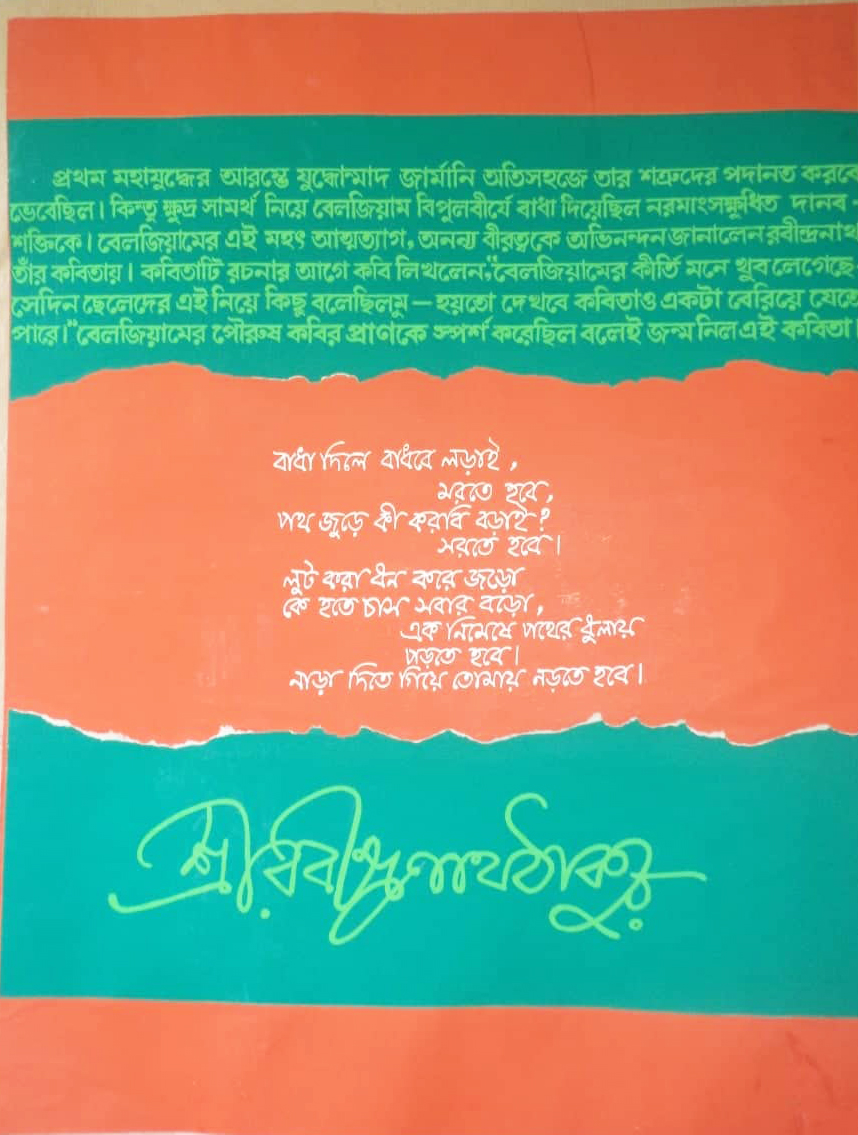 প্রথম মহাযুদ্ধের আরম্ভে যুদ্ধোন্মাদ জার্মানি অতিসহজে তার শত্রুদের পদানত করবে
ভেবেছিল। কিন্তু ক্ষুদ্র সামর্থ নিয়ে বেলজিয়াম বিপুলবীর্যে বাধা দিয়েছিল নরমাংসক্ষুধিত দানব-
শক্তিকে। বেলজিয়ামের এই মহৎ আত্মত্যাগ, অনন্য বীরত্বকে অভিনন্দন জানালেন রবীন্দ্রনাথ
তাঁর কবিতায়। কবিতাটি রচনার আগে কবি লিখলেন, "বেলজিয়ামের কীর্তি মনে খুব লেগেছে
সেদিন ছেলেদের এই নিয়ে কিছু বলেছিলুম — হয়তো দেখবে কবিতাও একটা বেরিয়ে যেতে
পারে।" বেলজিয়ামের পৌরুষ কবির প্রাণকে স্পর্শ করেছিল বলেই জন্ম নিল এই কবিতা।
বাধা দিলে বাধবে লড়াই,
মরতে হবে,
পথ জুড়ে কী করবি বড়াই?
সরতে হবে।
লুট করা ধন করে জড়ো
কে হতে চাস সবার বড়ো,
এক নিমেষে পথের ধুলায়
পড়তে হবে।
নাড়া দিতে গিয়ে তোমায় নড়তে হবে।
শ্রীরবীন্দ্রনাথ ঠাকুর